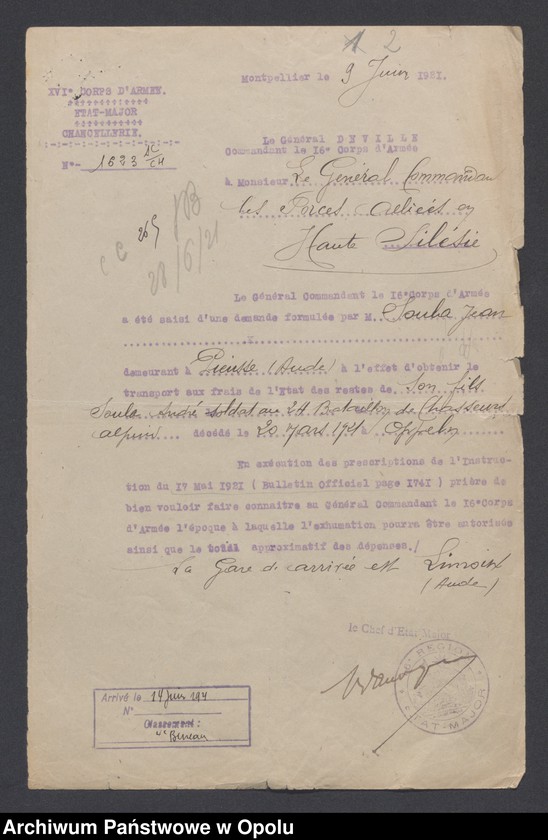 1 2
Montpellier le 9 Juin 1921.
XVI° CORPS D'ARMEE.
ETAT-MAJOR
CHANCELLERIE.
N°- 1623
Le Général DEVILLE
Commandant le 16° Corps d'Armée
à Monsieur Le Général Commandant
les Forces Alliées en
Haute Silésie
28/6/21
Le Général Commandant le 16°Corps d'Armée
a été saisi d'une demande formulée par M. Soula Jean
demeurant à Pieusse (Aude) à l'effet d'obtenir le
transport aux frais de l'Etat des restes de Son fils
Soula André soldat au 24 Bataillon de Chasseurs
alpins décédé le 20 Mars 1921 Oppeln
En exécution des prescriptions de l'Instruc-
tion du 17 Mai 1921 ( Bulletin Officiel page 1741 ) prière de
bien vouloir faire connaitre au Général Commandant le 16°Corps
d'Armée l'époque à laquelle l'exhumation pourra être autorisée
ainsi que le total approximatif des dépenses./
La Gare d'arrivée est Limoux
(Aude)
le Chef d'Etat Major
REGION
ETAT-MAJOR
Arrivé le 14 Juin
N°
Classement:
Bureau
Archiwum Państwowe w Opolu